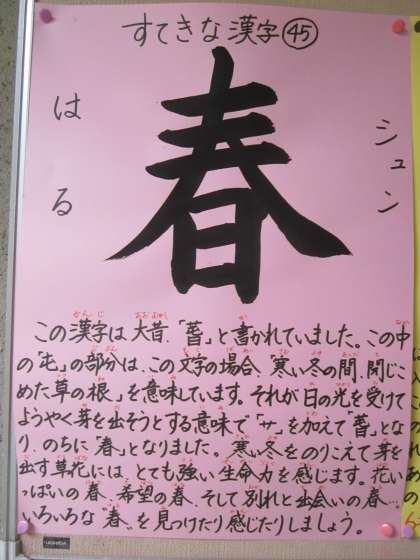 すてきな漢字㊺
春
はる
シュン
この漢字は大昔、「萅」と書かれていました。この中
の「屯」の部分は、この文字の場合、「寒い冬の間、閉じこ
めた草の根」を意味しています。それが日の光を受けて
ようやく芽を出そうとする意味で「サ」を加えて「萅」とな
り、のちに「春」となりました。寒い冬をのりこえて芽を
出す草花には、とても強い生命力を感じます。花い
っぱいの春、希望の春、そして別れと出会いの春…の
いろいろな“春”を見つけたり感じたりしましょう。